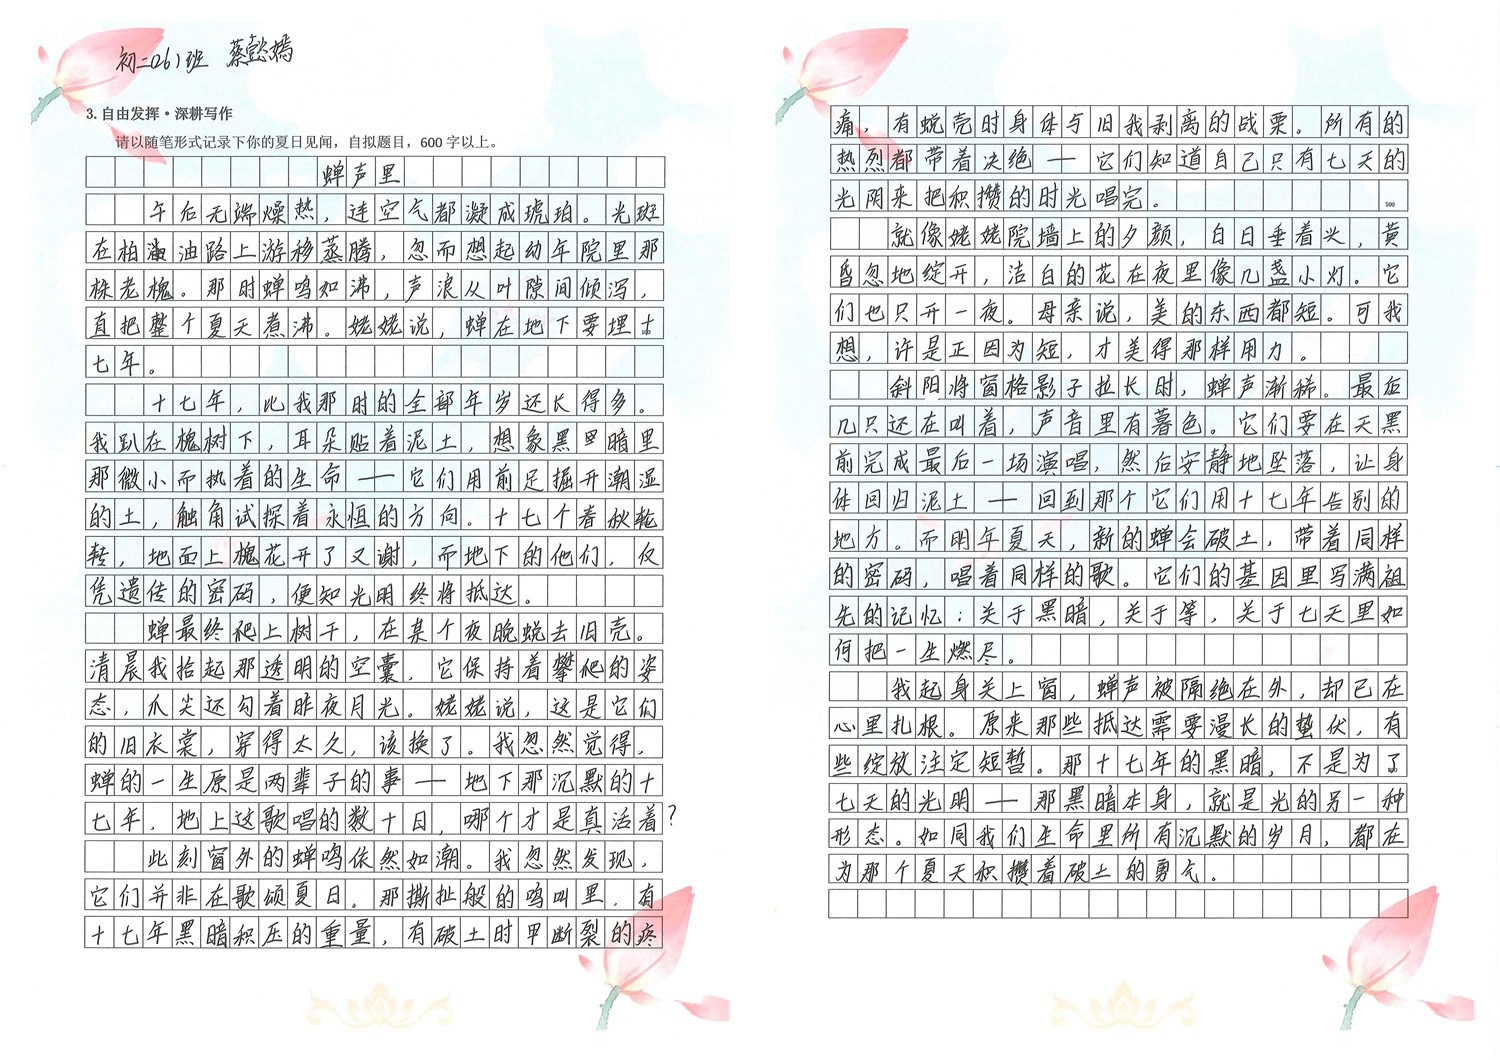 初二061班 蔡懿嫣
3. 自由发挥·深耕写作
请以随笔形式记录下你的夏日见闻，自拟题目，600字以上。
蝉声里
午后无端燥热，连空气都凝成琥珀。光斑
在柏油路上游移蒸腾，忽而想起幼年院里那
株老槐。那时蝉鸣如沸，声浪从叶隙间倾泻，
直把整个夏天煮沸。姥姥说，蝉在地下要埋十
七年。
十七年，比我那时的全部年岁还长得多。
我趴在槐树下，耳朵贴着泥土，想象黑暗里
那微小而执着的生命——它们用前足掘开潮湿
的土，触角试探着永恒的方向。十七个春秋轮
转，地面上槐花开了又谢，而地下的他们，仅
凭遗传的密码，便知光明终将抵达。
蝉最终爬上树干，在某个夜晚蜕去旧壳。
清晨我拾起那透明的空囊，它保持着攀爬的姿
态，爪尖还勾着昨夜月光。姥姥说，这是它们
的旧衣裳，穿得太久，该换了。我忽然觉得，
蝉的一生原是两辈子的事——地下那沉默的十
七年，地上这歌唱的数十日，哪个才是真活着？
此刻窗外的蝉鸣依然如潮。我忽然发现，
它们并非在歌颂夏日。那撕扯般的鸣叫里，有
十七年黑暗积压的重量，有破土时甲断裂的疼
痛，有蜕壳时身体与旧我剥离的战栗。所有的
热烈都带着决绝——它们知道自己只有七天的
光阴来把积攒的时光唱完。
500
就像姥姥院墙上的夕颜，白日垂着头，黄
昏忽地绽开，洁白的花在夜里像几盏小灯。它
们也只开一夜。母亲说，美的东西都短。可我
想，许是正因为短，才美得那样用力。
斜阳将窗格影子拉长时，蝉声渐稀。最后
几只还在叫着，声音里有暮色。它们要在天黑
前完成最后一场演唱，然后安静地坠落，让身
体回归泥土——回到那个它们用十七年告别的
地方。而明年夏天，新的蝉会破土，带着同样
的密码，唱着同样的歌。它们的基因里写满祖
先的记忆：关于黑暗，关于等，关于七天里如
何把一生燃尽。
我起身关上窗，蝉声被隔绝在外，却已在
心里扎根。原来那些抵达需要漫长的蛰伏，有
些绽放注定短暂。那十七年的黑暗，不是为了
七天的光明——那黑暗本身，就是光的另一种
形态。如同我们生命里所有沉默的岁月，都在
为那个夏天积攒着破土的勇气。